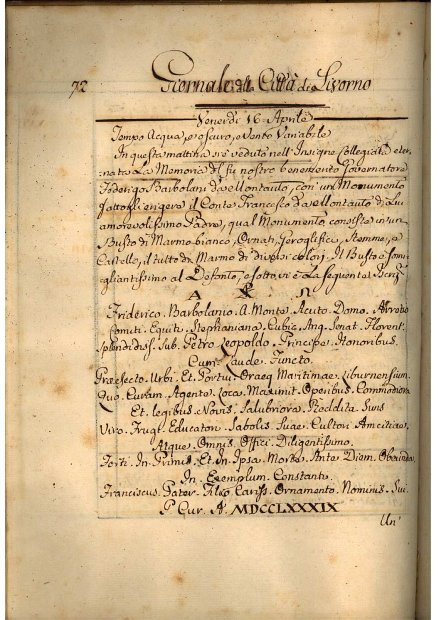 72 Giornale della Città di Livorno
Venerdi 16 Aprile
Tempo Acqua, e oscuro, e Vento Variabile
In questa mattina si è veduto nell'Insigne Collegiata eter-
nata La Memoria del fu nostro benemerito Governatore
Federigo Barbolani di Montauto, con un Monumento
fattogli erigere il Conte Francesco da Montauto di Lui
amorevolissimo Padre, qual Monumento consiste in un
Busto di Marmo bianco, Ornati, Geroglifici, Stemme, e
Cartello, il tutto da Marmo di diversi colori. Il Busto è somi-
gliantissimo al Defonto, e sotto vi è La seguente Scriz.e
A Ω
Friderico. Barbolanio. A. Monte. Acuto. Domo. Arretio
Comiti. Equiti. Stephaniano. Cubic. Aug. Senat. Florent.
Splendidiss. Sub. Petro. Leopoldo. Principe. Honoribus.
Cum. Laude. Functo.
Praefecto. Urbi. Et. Portui. Oraeq. Maritimae. Liburnensium.
Quo. Curam. Agente. Loca. Maximis. Operibus. Commodiora
Et. Legibus. Novis. Salubriora. Reddita. Sunt
Viro. Frugi. Educatori. Sobolis. Suae. Cultori. Amicitiae
Atque. Omnis. Offici. Diligentissimo.
Forti. In. Primis. Et. In. Ipsa. Morte. Ante. Diem. Obeunda
In. Exemplum. Constanti.
Franciscus. Pater. Filio. Cariss. Ornamento. Nominis. Sui
P. Cur. A. MDCCLXXXIX
Un'